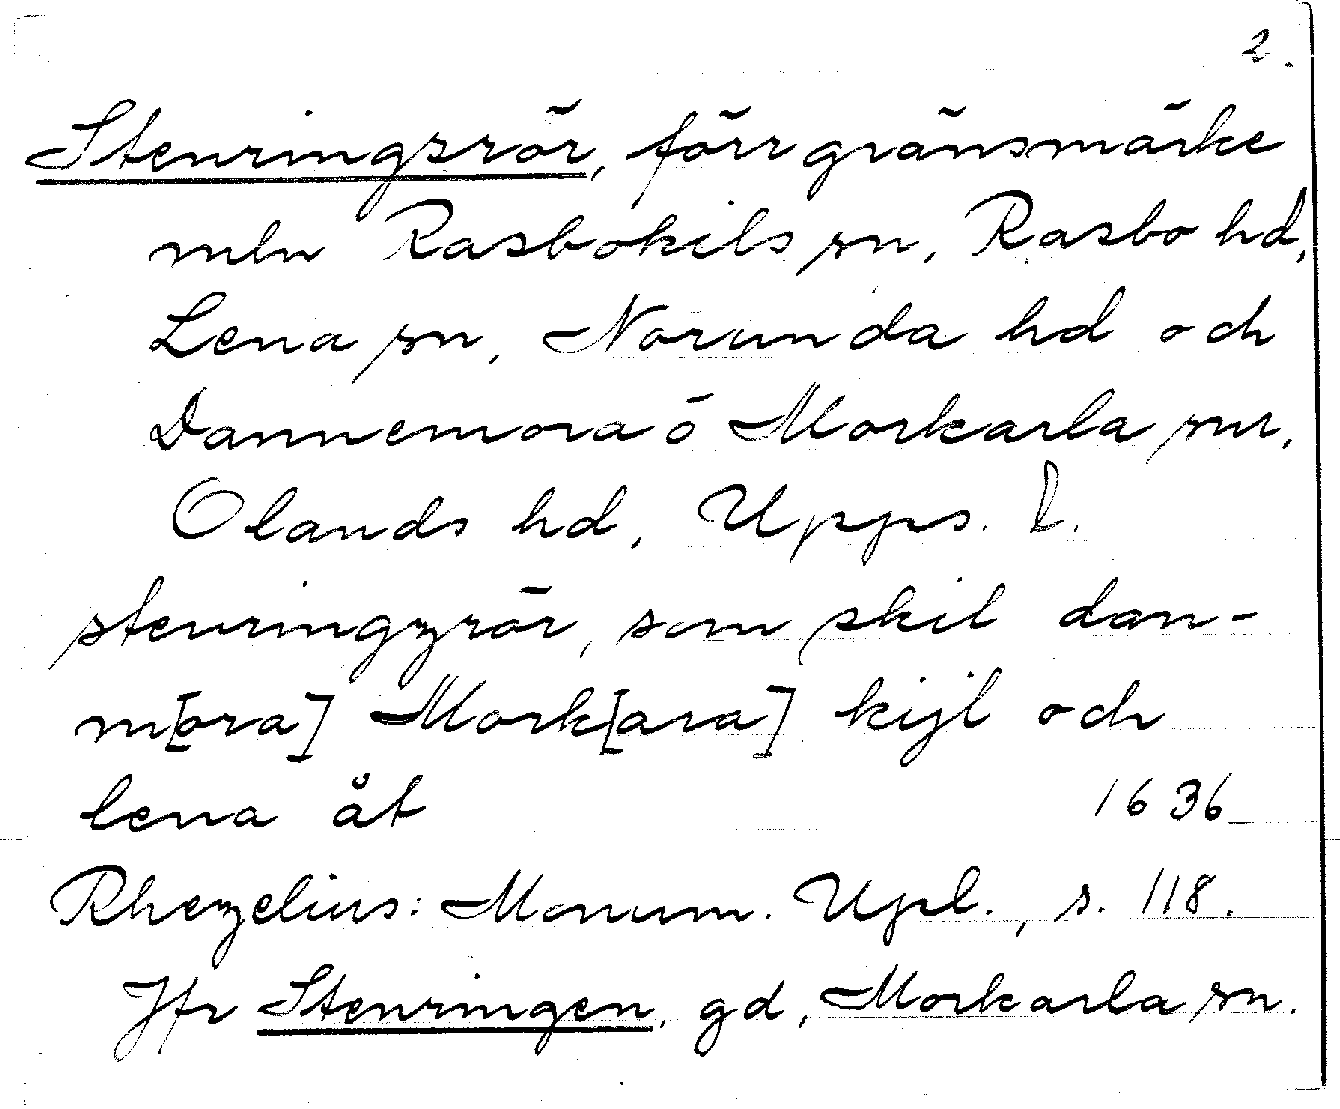 2.
Stenringsrör, förr gränsmärke
mln Rasbokils sn, Rasbo hd,
Lena sn, Norunda hd och
Dannemora o Morkarla snr,
Olands hd, Upps. l.
stenringzrör, som skil dan-
m[ora] Mork[ara] kijl och
lena åt 1636
Rhezelius: Monum. Upl., s. 118.
Jfr Stenringen, gd, Morkarla sn.